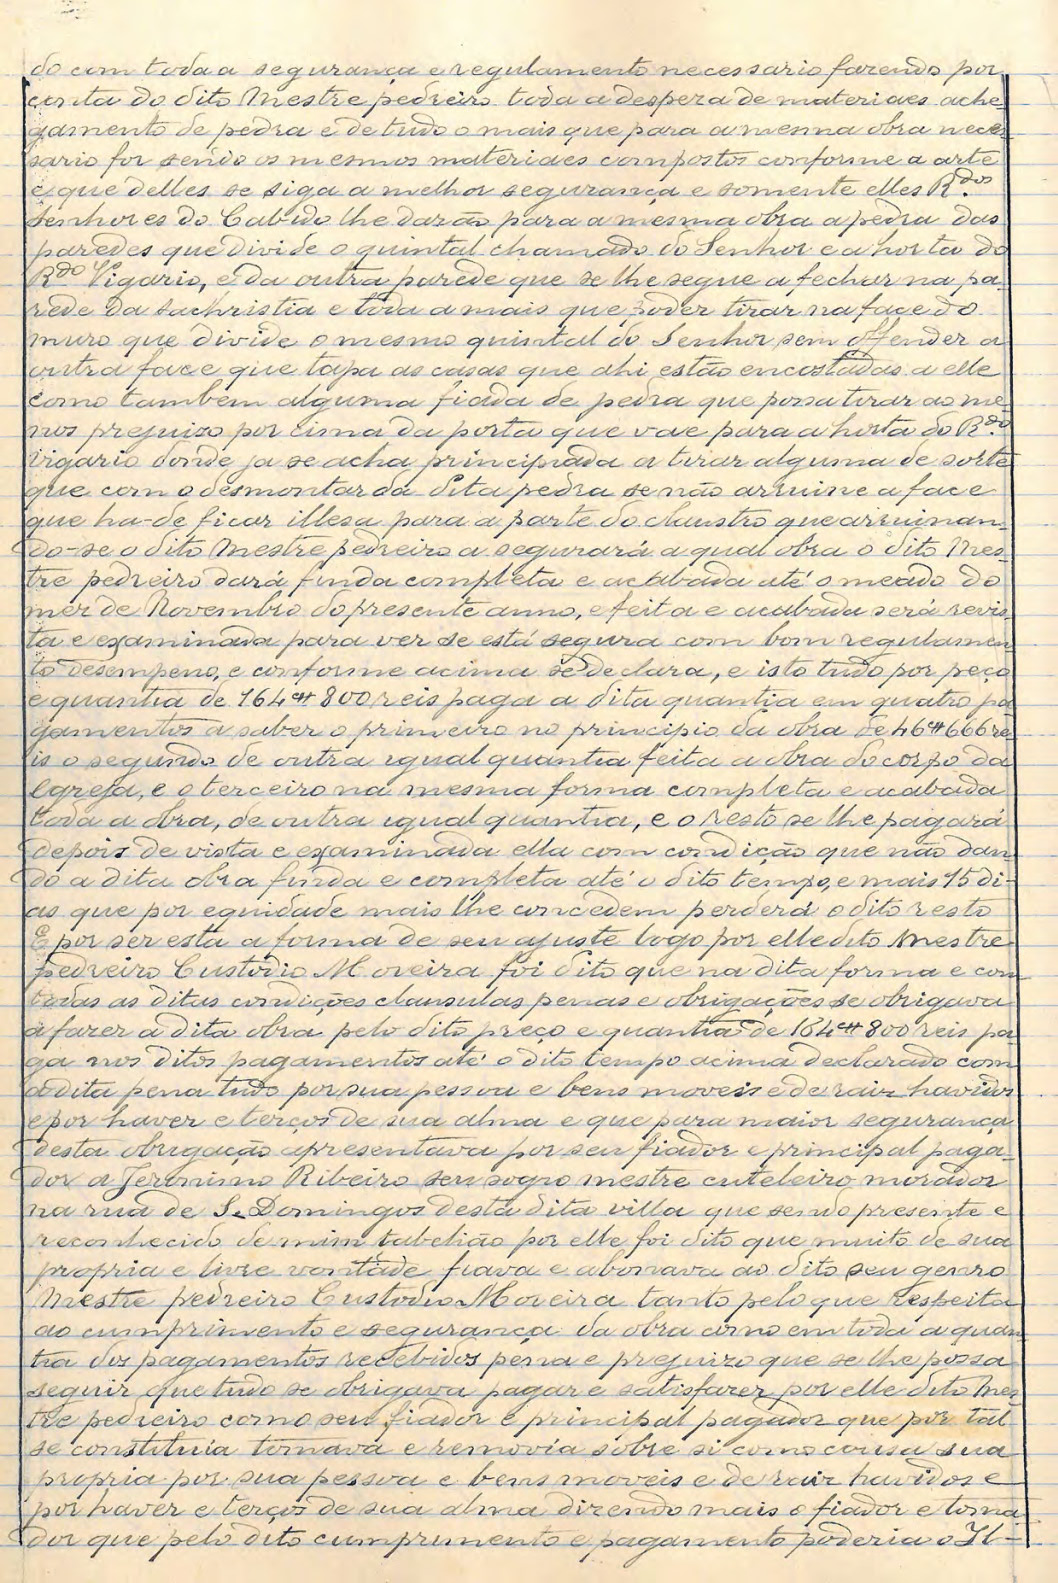 do com toda a segurança e regulamento necessario fazendo por
conta do dito Mestre pedreiro toda a despeza de materiaes ache-
gamento de pedra e de tudo o mais que para a mesma obra neces-
sario for sendo os mesmos materiaes compostos conforme a arte
e que delles se siga a melhor segurança e somente elles R.dos
Senhores do Cabido lhe darão para a mesma obra a pedra das
paredes que divide o quintal chamado do Senhor e a horta do
R.do Vigario, e da outra parede que se lhe segue a fechar na pa-
rede da sachristia e toda a mais que poder tirar na face do
muro que divide o mesmo quintal do Senhor sem offender a
outra face que tapa as casas que ahi estão encostadas a elle
como tambem alguma fiada de pedra que possa tirar ao me-
nos prejuizo por cima da porta que vae para a horta do R.do
Vigario donde ja se acha principiada a tirar alguma de sorte
que com o desmontar da dita pedra se não arruine a face
que ha-de ficar illesa para a parte do claustro que arruinan-
do-se o dito Mestre pedreiro a segurará a qual obra o dito Mes-
tre pedreiro dará finda completa e acabada até o meado do
mez de Novembro do presente anno, e feita e acabada será revis-
ta e examinada para ver se está segura com bom regulamen-
to desempeno, e conforme acima se declara, e isto tudo por preço
e quantia de 164$800 reis paga a dita quantia em quatro pa-
gamentos a saber o primeiro no principio da obra de 46$666 re-
is o segundo de outra igual quantia feita a obra do corpo da
Egreja, e o terceiro na mesma forma completa e acabada
toda a obra, de outra igual quantia, e o resto se lhe pagará
depois de vista e examinada ella com condição que não dan-
do a dita obra finda e completa até o dito tempo, e mais 15 di-
as que por equidade mais lhe concedem perderá o dito resto
E por ser esta a forma de seu ajuste logo por elle dito Mestre
pedreiro Custodio Moreira foi dito que na dita forma e com
todas as ditas condições clausulas penas e obrigações se obrigava
a fazer a dita obra pelo dito preço e quantia de 164$800 reis pa-
ga nos ditos pagamentos até o dito tempo acima declarado com
a dita pena tudo por sua pessoa e bens moveis e de raiz havidos
e por haver e terços de sua alma e que para maior segurança
desta obrigação apresentava por seu fiador e principal paga-
dor a Jeronimo Ribeiro seu sogro mestre cuteleiro morador
na rua de S. Domingos desta dita villa que sendo presente e
reconhecido de mim tabelião por elle foi dito que muito de sua
propria e livre vontade fiava e abonava ao dito seu genro
Mestre pedreiro Custodio Moreira tanto pelo que respeita
ao cumprimento e segurança da obra como em toda a quan-
tia dos pagamentos recebidos pena e prejuizo que se lhe possa
seguir que tudo se obrigava pagar e satisfazer por elle dito Mes-
tre pedreiro como seu fiador e principal pagador que por tal
se constituia tomava e removia sobre si como cousa sua
propria por sua pessoa e bens moveis e de raiz havidos e
por haver e terços de sua alma dizendo mais o fiador e toma-
dor que pelo dito cumprimento e pagamento poderia o Il-